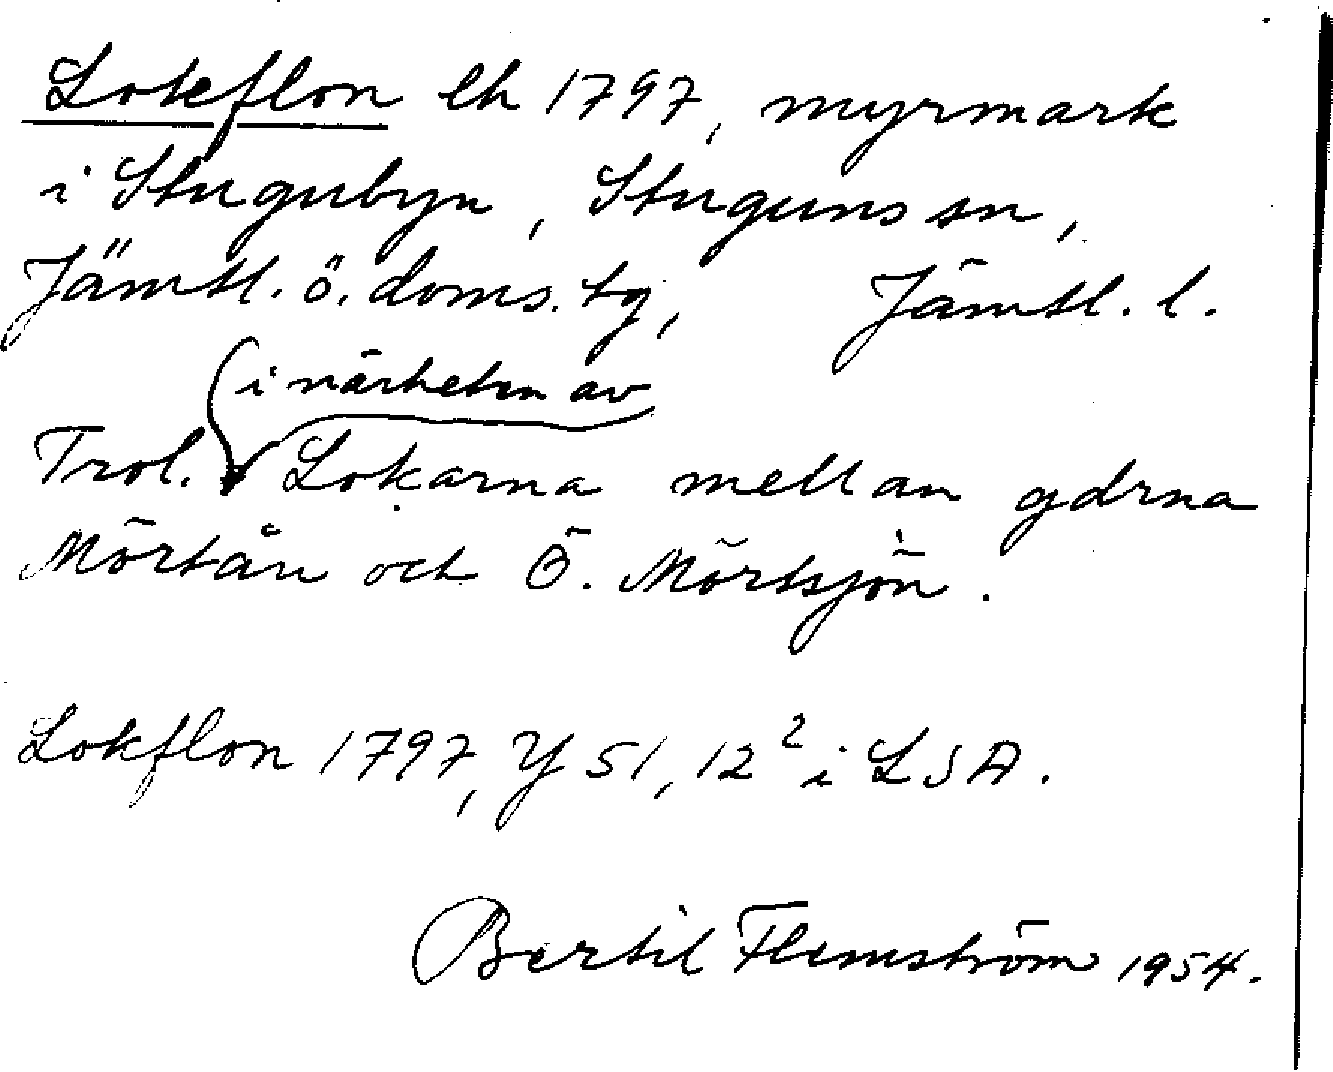 Lokflon lh 1797, myrmark
i Stugubyn, Stuguns sn,
Jämtl. ö. doms. tg, Jämtl. l.
i närheten av
Trol. Lokarna mellan gdrna
Mörtån och Ö. Mörtsjön.
Lokflon 1797, Y 51, 12² i LSA.
Bertil Flemström 1954.